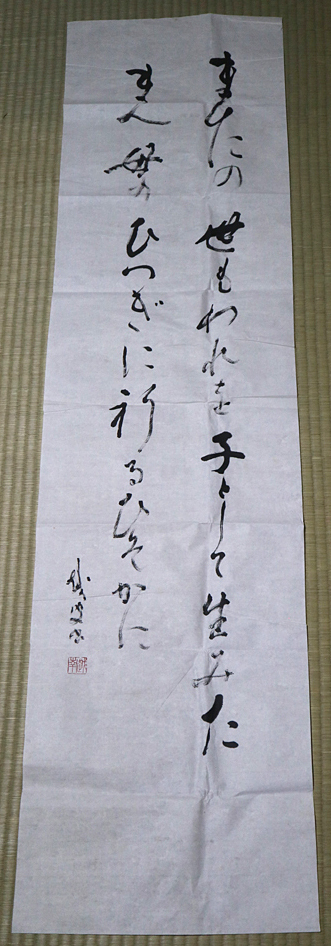 またの世もわれを子として生みた
まへ母のひつぎに祈るひそかに